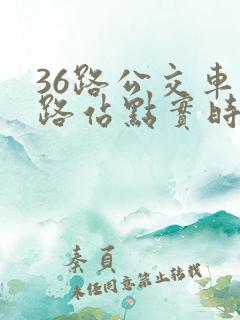 36路公交車
路佔點實時
秦頁
未经同意禁止转载